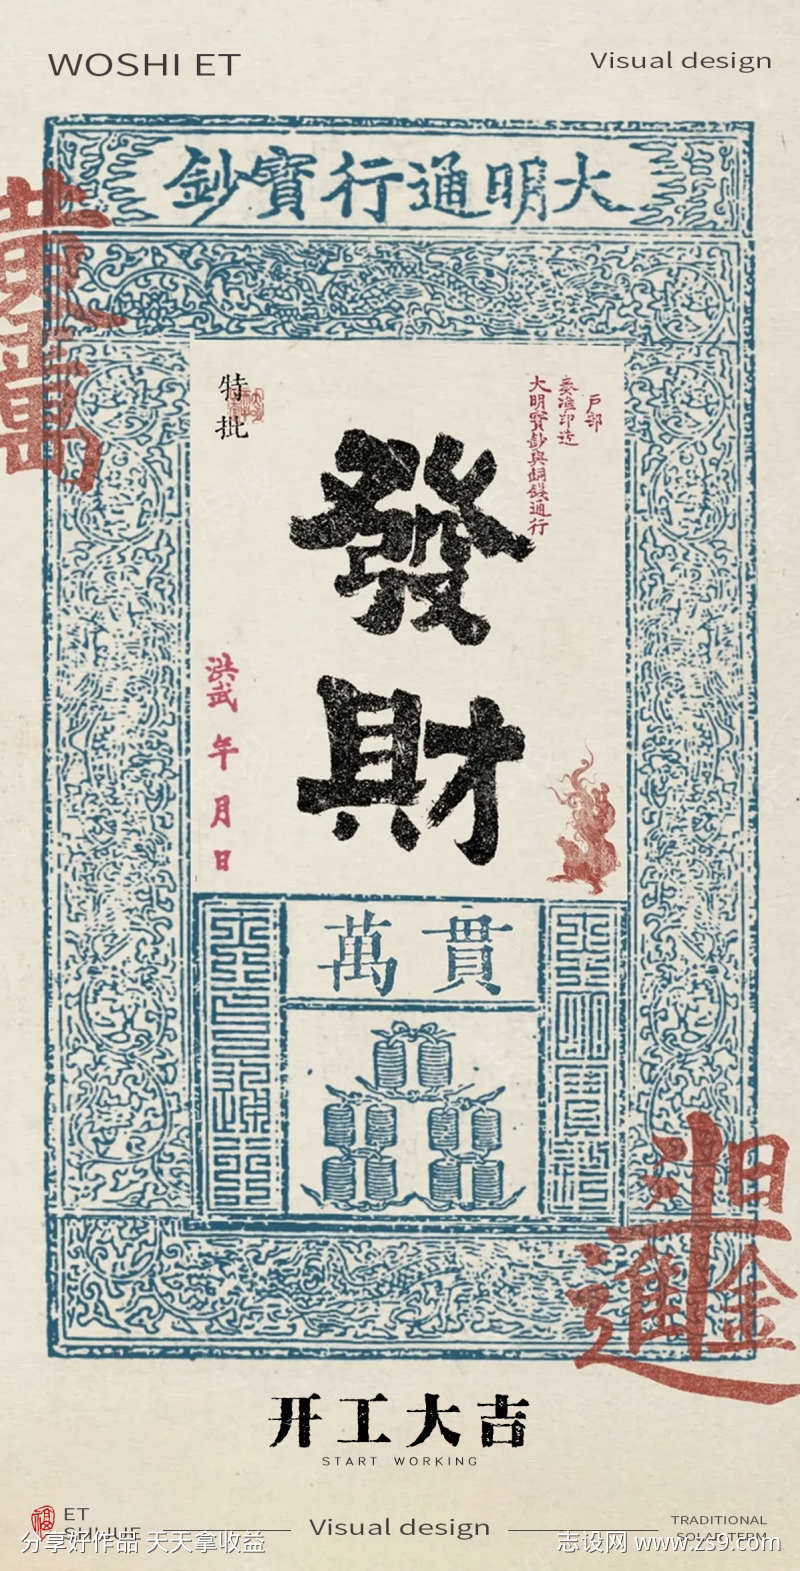 WOSHI ET
Visual design
大明通行寶鈔
特批
戶部
奏準印造
大明寳鈔與銅錢通行
發財
洪武 年 月 日
貫萬
黃金萬
日進斗金
开工大吉
START WORKING
ET
SHIJUE
Visual design
TRADITIONAL
SOLAR TERM
分享好作品 天天拿收益
志设网 www.zs9.com